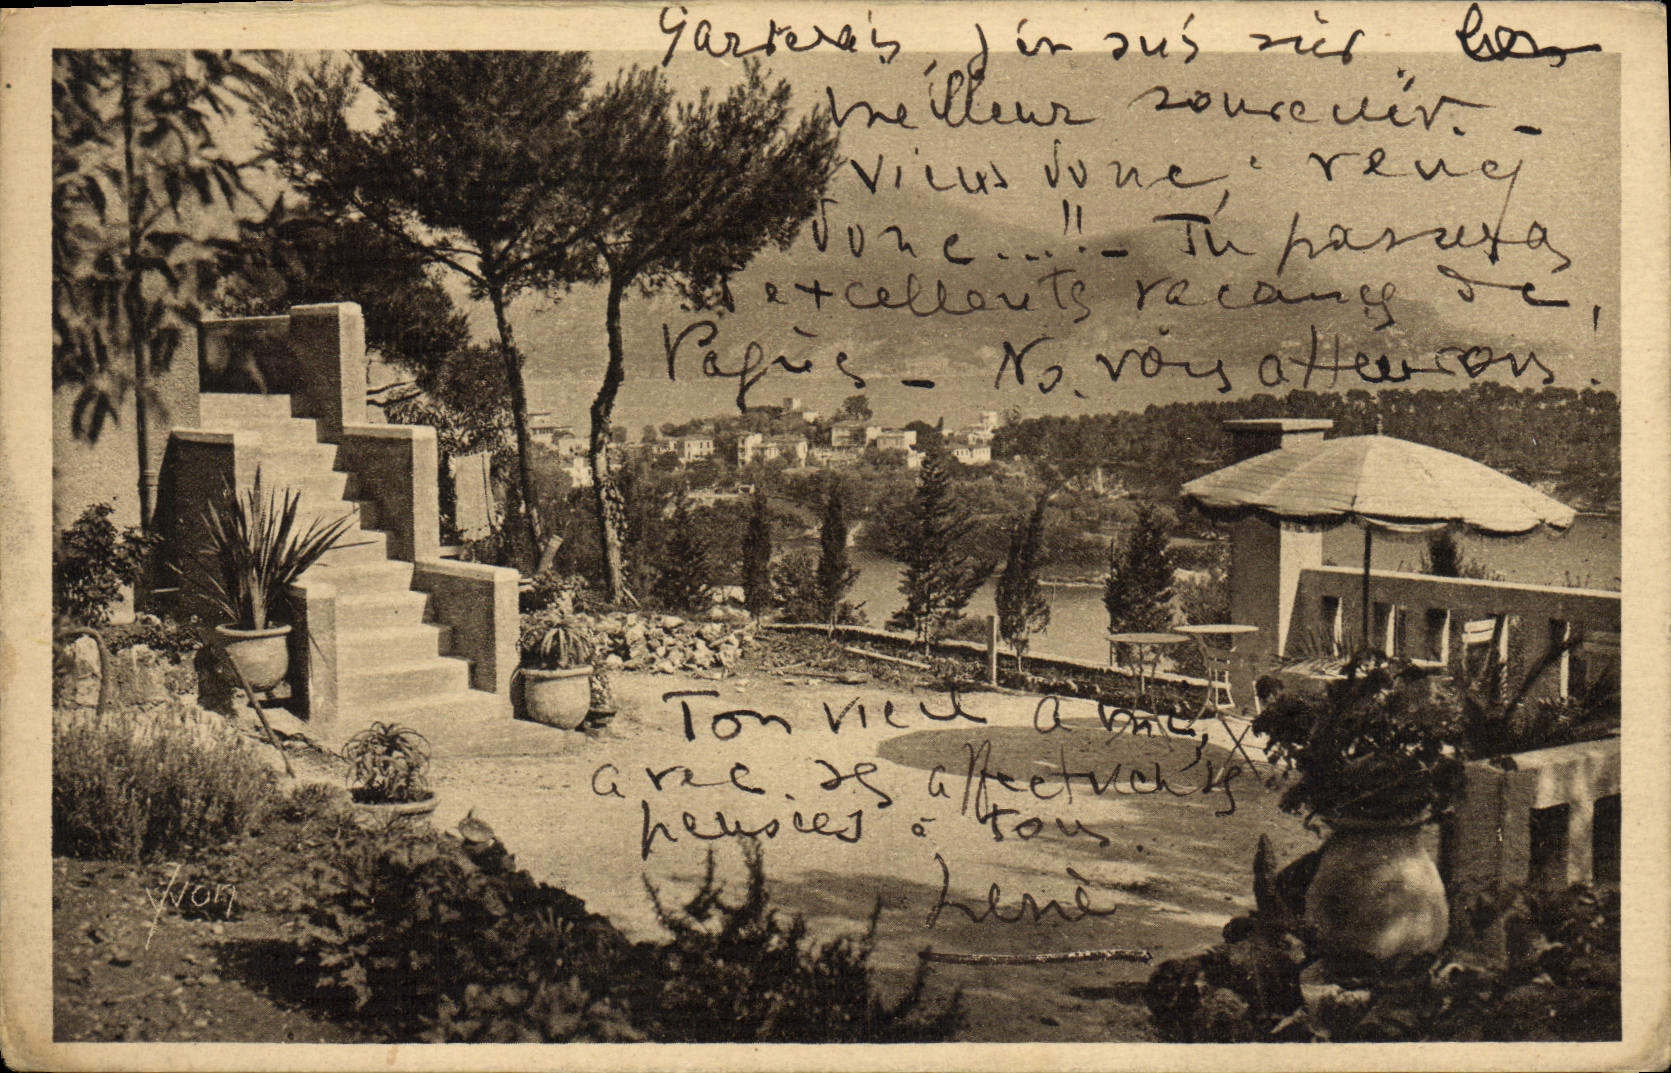 garderais, j'en suis sûr, bon
meilleur souvenir. -
viens donc, venez
donc...!! - Tu passeras
d'excellentes vacances de
Pâques - Ns. vous attendrons.
Ton vieil ami,
avec ses affectueuses
pensées à tous.
René
Yvon